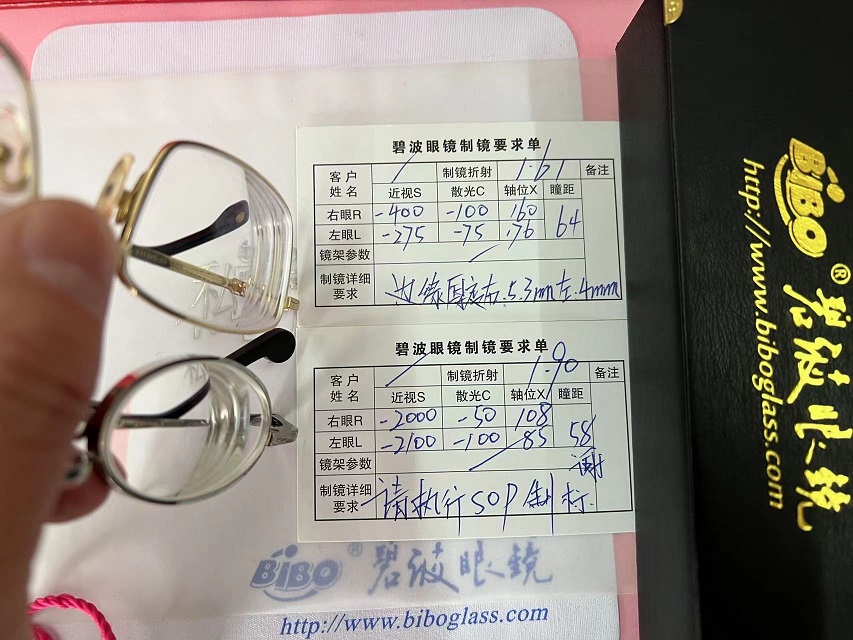 碧波眼镜制镜要求单
客户姓名 制镜折射 1.61 备注
近视S 散光C 轴位X 瞳距
右眼R -400 -100 160 64
左眼L -275 -75 176
镜架参数
制镜详细要求 边缘固定右.5.3mm左.4mm
碧波眼镜制镜要求单
客户姓名 制镜折射 1.90 备注
近视S 散光C 轴位X 瞳距
右眼R -2000 -50 108 58
左眼L -2100 -100 85
镜架参数 谢
制镜详细要求 请执行SOP制标.
BiBO® 碧波眼镜
http://www.biboglass.com
BiBO® 碧波眼镜
http://www.biboglass.com